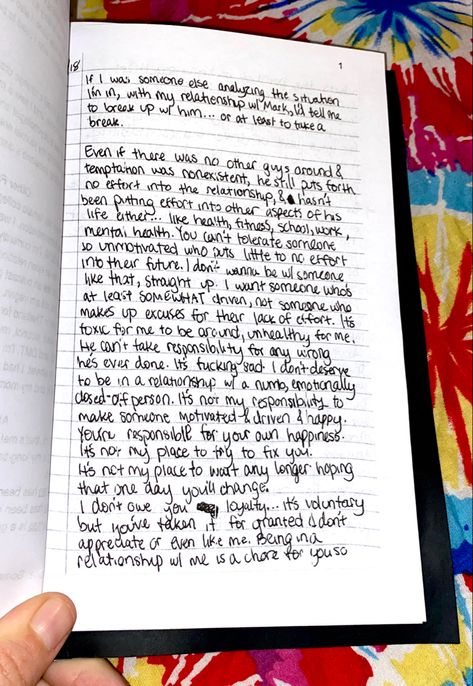 18
1
If I was someone else analyzing the situation
I'm in, with my relationship w/ Mark, I'd tell me
to break up w/ him... or at least to take a
break.
Even if there was no other guys around &
temptation was nonexistent, he still puts forth
no effort into the relationship, & hasn't
been putting effort into other aspects of his
life either... like health, fitness, school, work,
mental health. You can't tolerate someone
so unmotivated who puts little to no effort
into their future. I don't wanna be w/ someone
like that, straight up. I want someone who's
at least SOMEWHAT driven, not someone who
makes up excuses for their lack of effort. It's
toxic for me to be around, unhealthy for me.
He can't take responsibility for any wrong
he's ever done. It's fucking sad. I don't deserve
to be in a relationship w/ a numb, emotionally
closed-off person. It's not my responsibility to
make someone motivated & driven & happy.
You're responsible for your own happiness.
It's not my place to try to fix you.
It's not my place to wait any longer hoping
that one day you'll change.
I don't owe you loyalty... it's voluntary
but you've taken it for granted & don't
appreciate or even like me. Being in a
relationship w/ me is a chore for you so